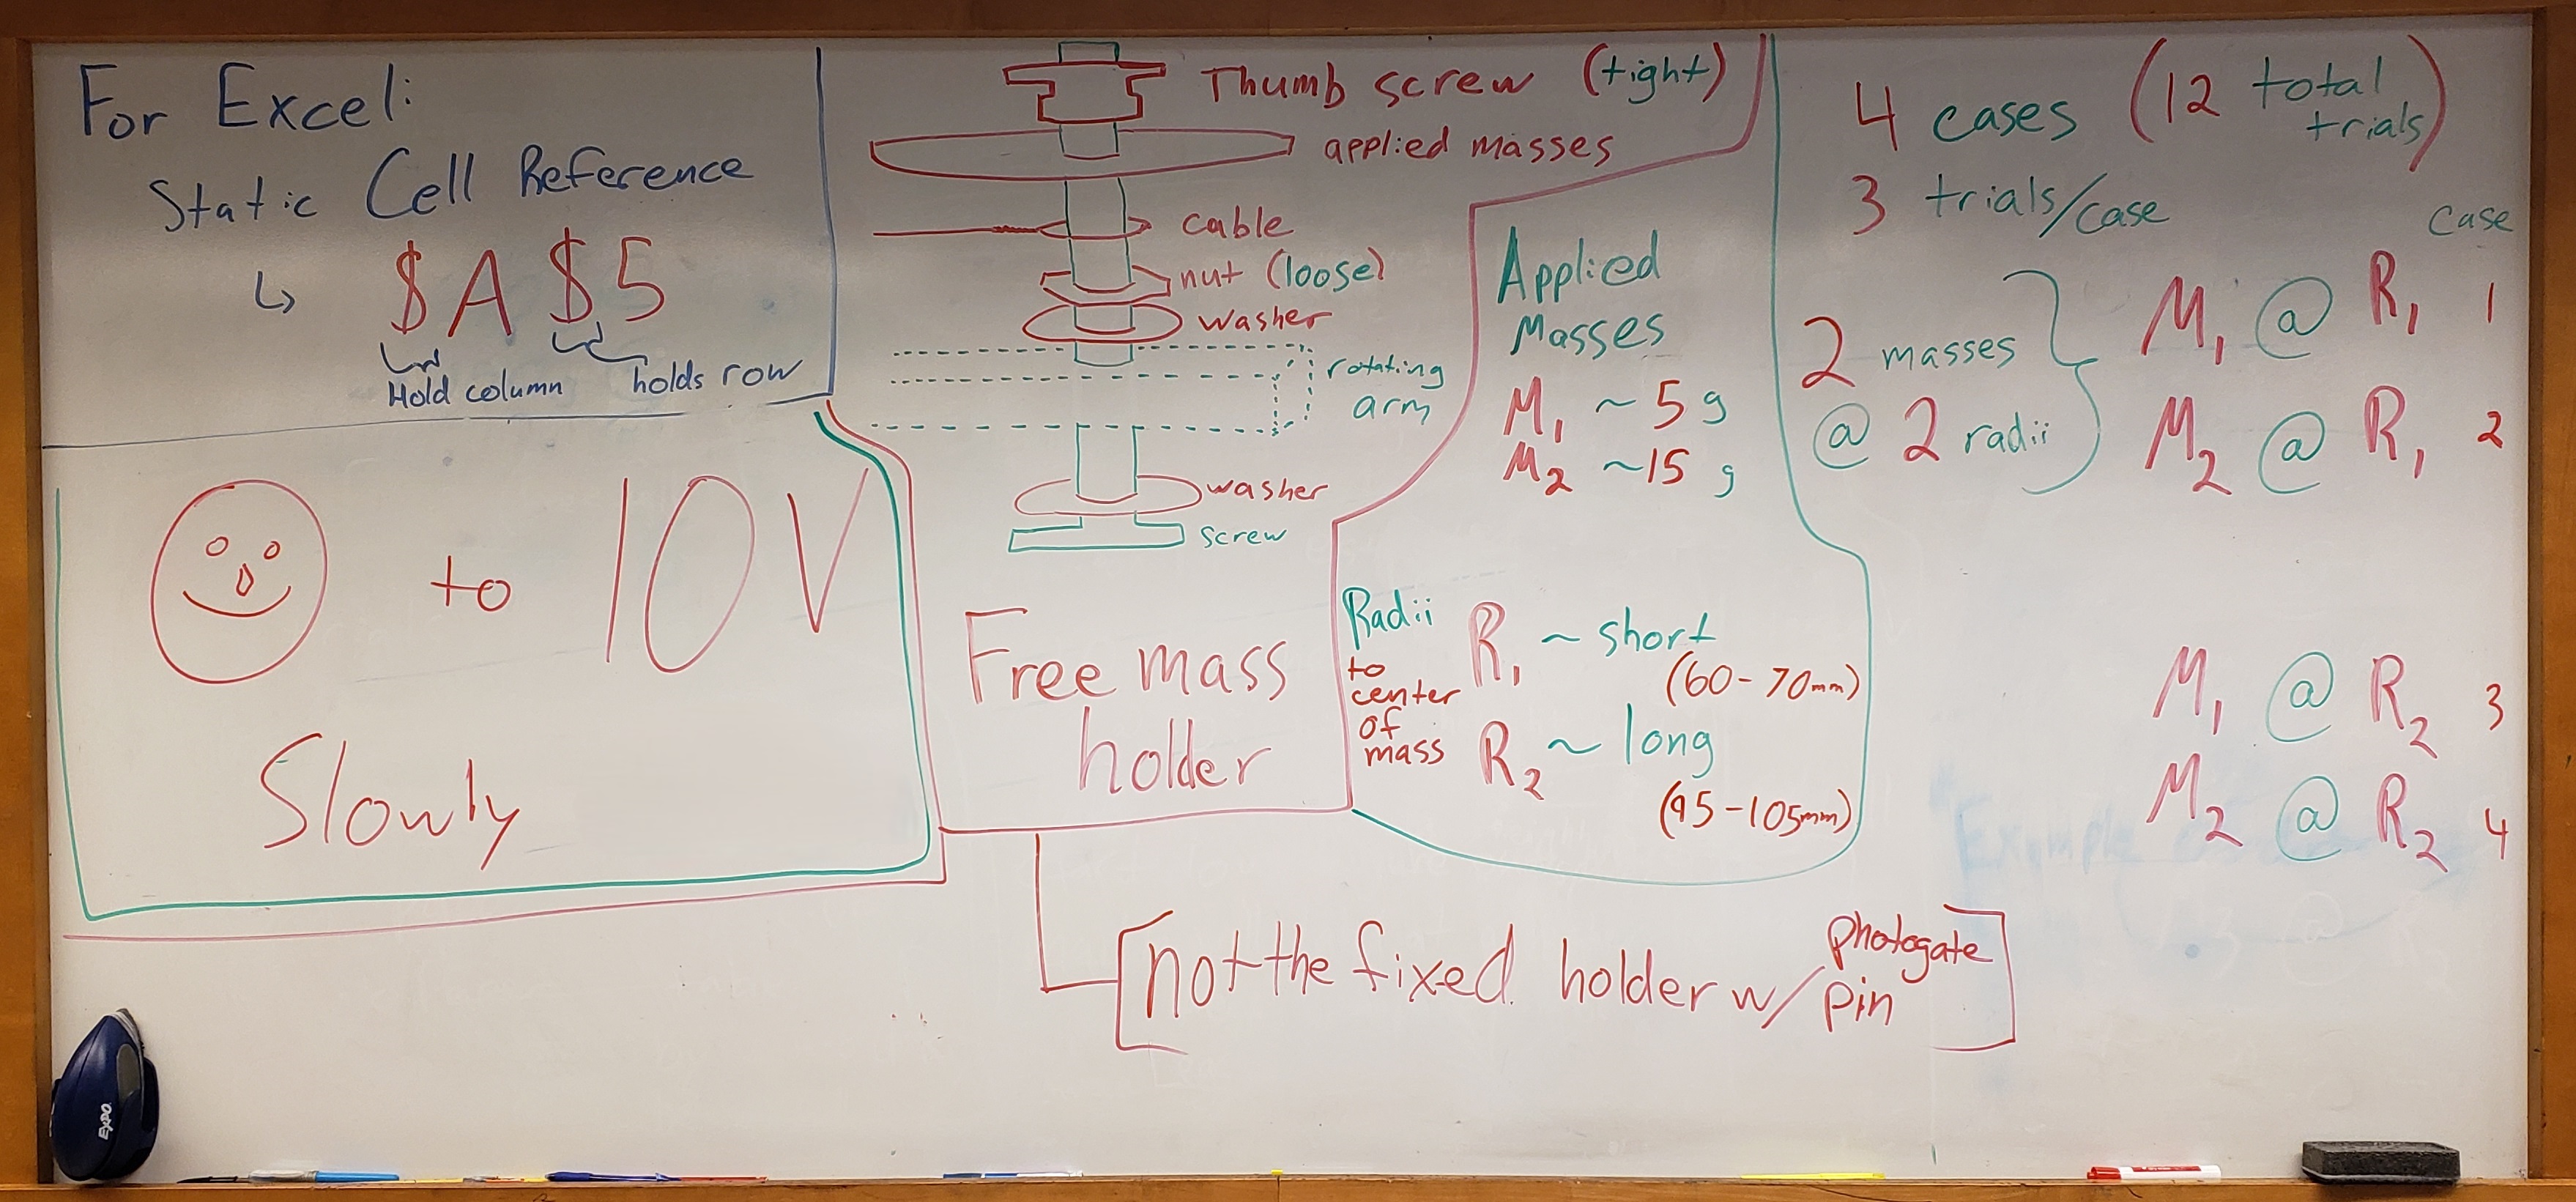 For Excel:
Static Cell Reference
↳ $A$5
Hold column
holds row
to 10V
Slowly
Thumb screw (tight)
applied masses
cable
nut (loose)
washer
rotating
arm
washer
screw
Free mass
holder
[not the fixed holder w/ photogate
pin]
Applied
Masses
M₁ ~ 5 g
M₂ ~15 g
Radii
to
center
of
mass
R₁ ~ short
(60-70mm)
R₂ ~ long
(95-105mm)
4 cases (12 total
trials)
3 trials/case
2 masses
@ 2 radii
case
M₁ @ R₁ 1
M₂ @ R₁ 2
M₁ @ R₂ 3
M₂ @ R₂ 4
EXPO